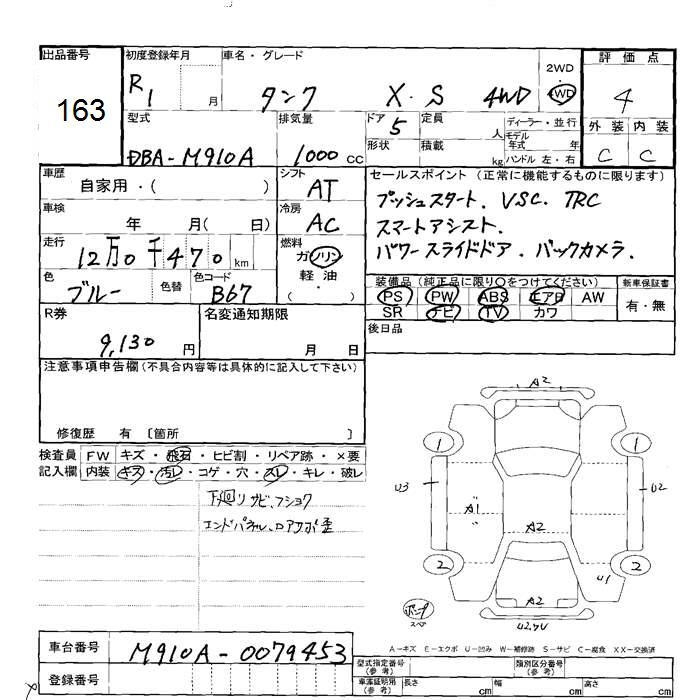 出品番号
163
初度登録年月
R1 月
車名・グレード
タンク X・S 4WD
2WD
4WD
評価点
4
外装 内装
C C
型式
DBA-M910A
排気量
1000 CC
ドア
5
形状
定員
人
積載
kg
ディーラー・並行
モデル
年式 年
ハンドル 左・右
車歴
自家用・( )
シフト
AT
セールスポイント (正常に機能するものに限ります)
プッシュスタート. VSC. TRC
スマートアシスト.
パワースライドドア. バックカメラ.
車検
年 月( 日)
冷房
AC
走行
12万0千470 km
燃料
ガソリン
軽油
( )
色
ブルー
色替
色コード
B67
装備品(純正品に限り○をつけてください)
PS PW ABS エアB AW
SR ナビ TV カワ
新車保証書
有・無
R券
9,130 円
名変通知期限
月 日
後日品
注意事項申告欄(不具合内容等は具体的に記入して下さい)
修復歴 有 〔箇所 〕
検査員
記入欄
FW キズ・飛石・ヒビ割・リペア跡・×要
内装 キズ・汚レ・コゲ・穴・スレ・キレ・破レ
下廻リサビ、フショク
エンドパネル、ロアサポ歪
A2
1 1
U3 U2
A1
A2
2 2
U1
A2
U2.4U
パンク
スペ
A-キズ E-エクボ U-凹み W-補修跡 S-サビ C-腐食 XX-交換済
車台番号
M910A-0079453
登録番号
型式指定番号
(参考)
類別区分番号
(参考)
車庫証明用
(参考)
長さ cm 幅 cm 高さ cm